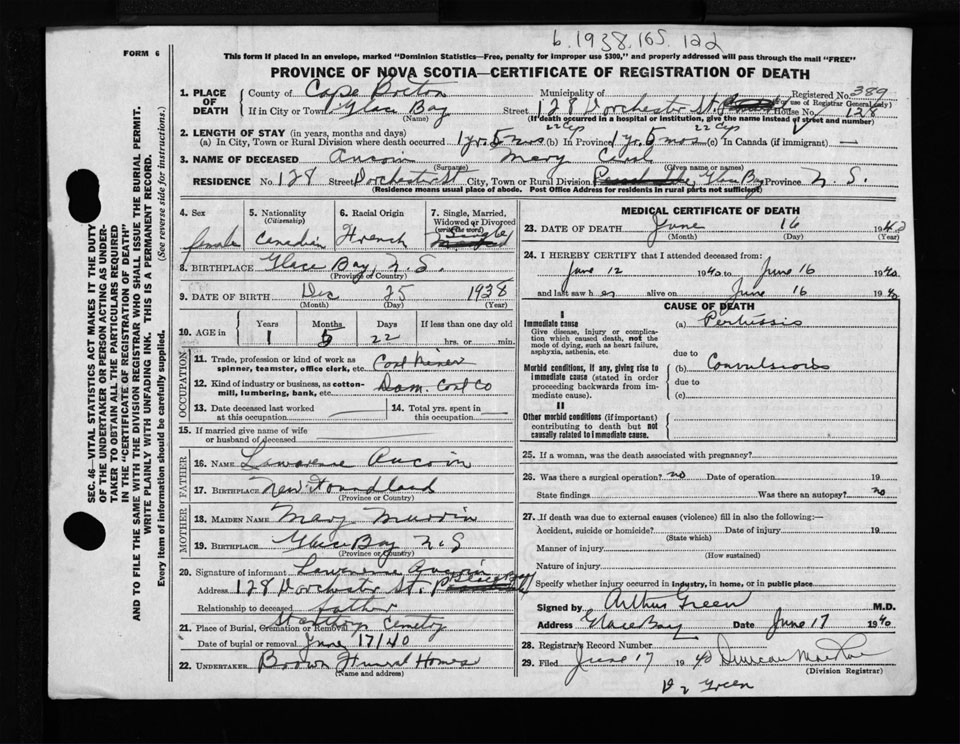 b. 1938. 165. 122
FORM 6
This form if placed in an envelope, marked "Dominion Statistics—Free, penalty for improper use $300," and properly addressed will pass through the mail "FREE"
PROVINCE OF NOVA SCOTIA—CERTIFICATE OF REGISTRATION OF DEATH
1. PLACE OF DEATH
County of Cape Breton
Municipality of
Registered No. 389
(For use of Registrar General only)
If in City or Town Glace Bay
(Name)
Street 128 Dorchester St.
House No. 128
(If death occurred in a hospital or institution, give the name instead of street and number)
2. LENGTH OF STAY (in years, months and days)
(a) In City, Town or Rural Division where death occurred 1 yr. 5 mos 22 dys (b) In Province 1 yr. 5 mos 22 dys (c) In Canada (if immigrant) —
3. NAME OF DECEASED Aucoin Mary
(Surname) (Given name or names)
RESIDENCE No. 128 Street Dorchester St City, Town or Rural Division Glace Bay Province N. S.
(Residence means usual place of abode. Post Office Address for residents in rural parts not sufficient)
4. Sex
female
5. Nationality
(Citizenship)
Canadian
6. Racial Origin
French
7. Single, Married, Widowed or Divorced
(write the word)
Single
8. BIRTHPLACE Glace Bay, N. S.
(Province or Country)
9. DATE OF BIRTH Dec 25 1938
(Month) (Day) (Year)
10. AGE in
Years Months Days If less than one day old
1 5 22 hrs. or min.
OCCUPATION
11. Trade, profession or kind of work as spinner, teamster, office clerk, etc. Coal Miner
12. Kind of industry or business, as cotton-mill, lumbering, bank, etc. Dom. Coal Co
13. Date deceased last worked at this occupation
14. Total yrs. spent in this occupation
15. If married give name of wife or husband of deceased
FATHER
16. NAME Lawrence Aucoin
17. BIRTHPLACE Newfoundland
(Province or Country)
MOTHER
18. MAIDEN NAME Mary
19. BIRTHPLACE Glace Bay N. S
(Province or Country)
20. Signature of informant Lawrence Aucoin
Address 128 Dorchester St. Glace Bay
Relationship to deceased father
21. Place of Burial, Cremation or Removal Cemetery
Date of burial or removal June 17/40
22. UNDERTAKER Brown Funeral Homes
(Name and address)
MEDICAL CERTIFICATE OF DEATH
23. DATE OF DEATH June 16 1940
(Month) (Day) (Year)
24. I HEREBY CERTIFY that I attended deceased from:
June 12 1940 to June 16 1940
and last saw her alive on June 16 1940
CAUSE OF DEATH
I
Immediate cause
Give disease, injury or complication which caused death, not the mode of dying, such as heart failure, asphyxia, asthenia, etc.
(a) Pertussis
due to
Morbid conditions, if any, giving rise to immediate cause (stated in order proceeding backwards from immediate cause).
(b) Convulsions
due to
(c)
II
Other morbid conditions (if important) contributing to death but not causally related to immediate cause.
25. If a woman, was the death associated with pregnancy?
26. Was there a surgical operation? no Date of operation 19
State findings Was there an autopsy? no
27. If death was due to external causes (violence) fill in also the following:—
Accident, suicide or homicide? Date of injury 19
(State which)
Manner of injury
(How sustained)
Nature of injury
Specify whether injury occurred in industry, in home, or in public place
Signed by Arthur Green M.D.
Address Glace Bay Date June 17 1940
28. Registrar's Record Number
29. Filed June 17 1940 Duncan
(Division Registrar)
Dr Green
SEC. 46—VITAL STATISTICS ACT MAKES IT THE DUTY
OF THE UNDERTAKER OR PERSON ACTING AS UNDER-
TAKER TO OBTAIN ALL THE PARTICULARS REQUIRED
IN THE "CERTIFICATE OF REGISTRATION OF DEATH"
AND TO FILE THE SAME WITH THE DIVISION REGISTRAR WHO SHALL ISSUE THE BURIAL PERMIT.
WRITE PLAINLY WITH UNFADING INK. THIS IS A PERMANENT RECORD.
Every item of information should be carefully supplied. (See reverse side for instructions.)